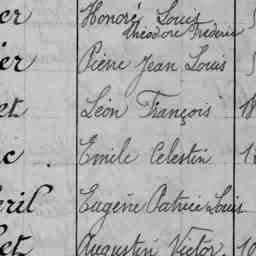 er Honoré Louis 5
Théodore Frédéric
er Pierre Jean Louis 5
et Léon François 18
c . Emile Celestin 12
eril Eugène Patrice Louis
let Augustin Victor 10